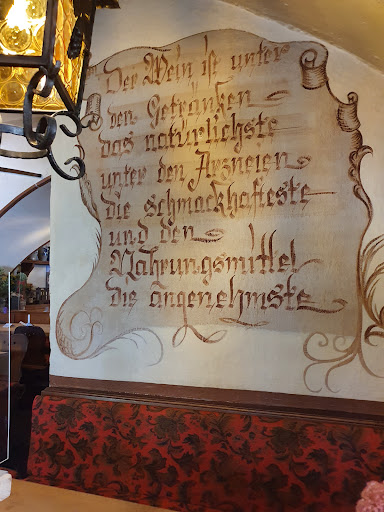 Der Wein ist unter
den Getränken
das natürlichste
unter den Arzneien
die schmackhafteste
und den
Nahrungsmittel
die angenehmste